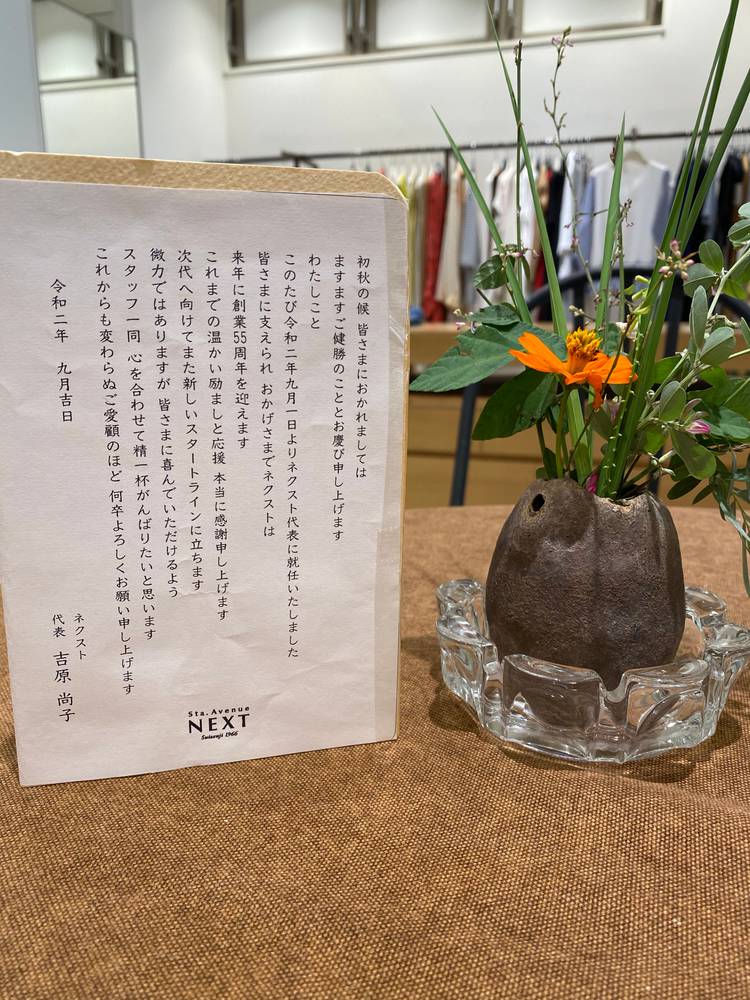 初秋の候 皆さまにおかれましては
ますますご健勝のこととお慶び申し上げます
わたしこと
このたび令和二年九月一日よりネクスト代表に就任いたしました
皆さまに支えられ おかげさまでネクストは
来年に創業55周年を迎えます
これまでの温かい励ましと応援 本当に感謝申し上げます
次代へ向けてまた新しいスタートラインに立ちます
微力ではありますが 皆さまに喜んでいただけるよう
スタッフ一同 心を合わせて精一杯がんばりたいと思います
これからも変わらぬご愛顧のほど 何卒よろしくお願い申し上げます
令和二年 九月吉日
ネクスト
代表 吉原 尚子
Sta. Avenue
NEXT
Suizenji 1966